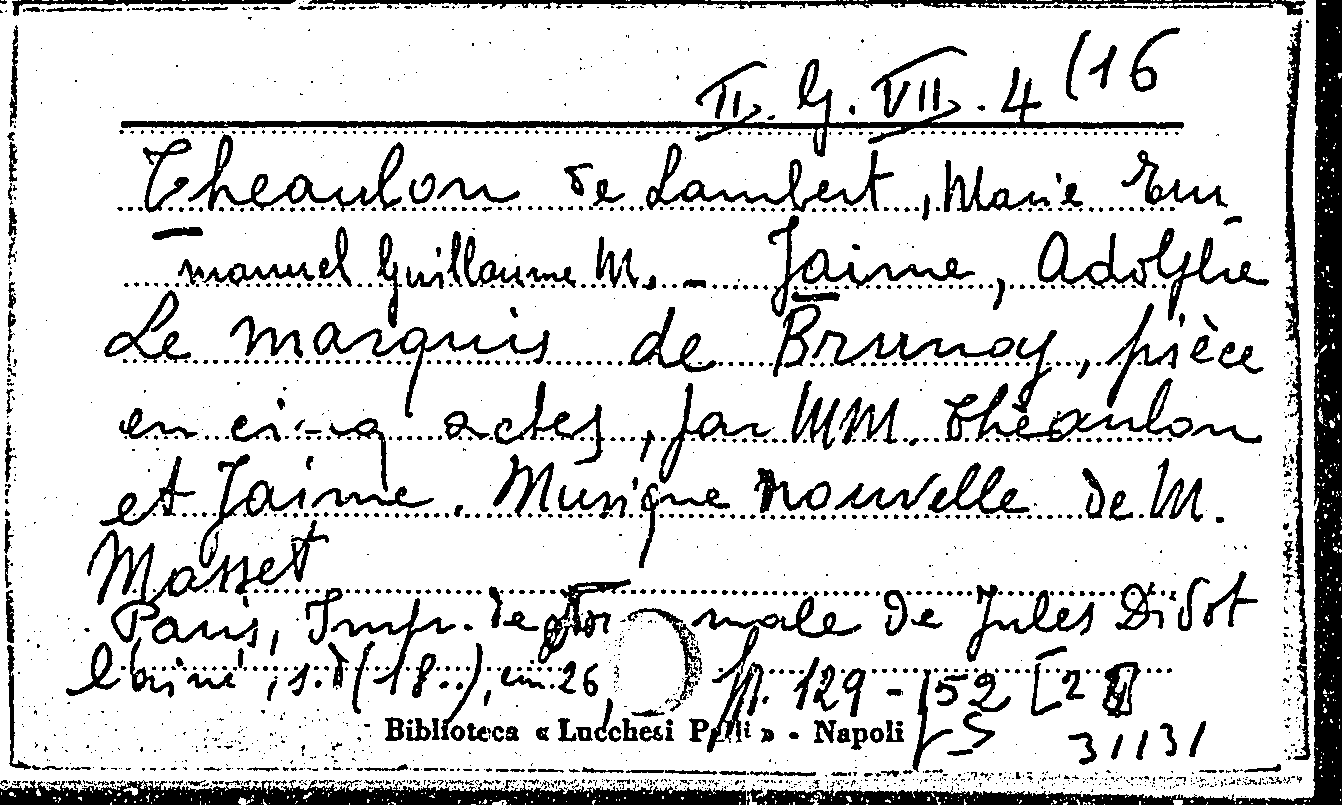 II. G. VII. 4 (16
Theaulon de Lambert, Marie Em
manuel Guillaume M. - Jaime, Adolphe
Le marquis de Brunoy, pièce
en cinq actes, par MM. Théaulon
et Jaime. Musique nouvelle de M.
Masset
Paris, Imp. de male de Jules Didot
l'ainé, s.d (18..), cm. 26, pp. 129 - 152 [2
Biblioteca « Lucchesi Palli » - Napoli
31131